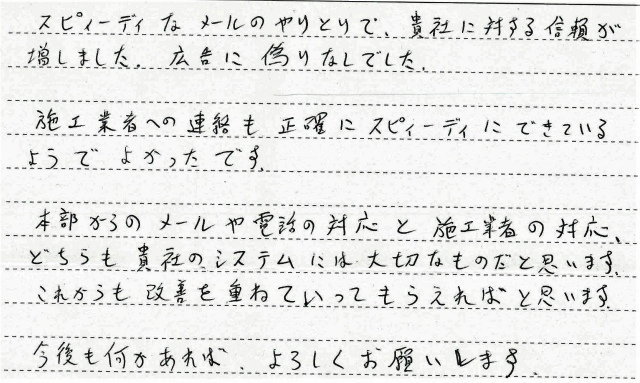 スピィーディなメールのやりとりで、貴社に対する信頼が
増しました。広告に偽りなしでした。
施工業者への連絡も正確にスピィーディにできている
ようでよかったです。
本部からのメールや電話の対応と施工業者の対応、
どちらも貴社のシステムには大切なものだと思います。
これからも改善を重ねていってもらえればと思います。
今後も何かあれば、よろしくお願いします。